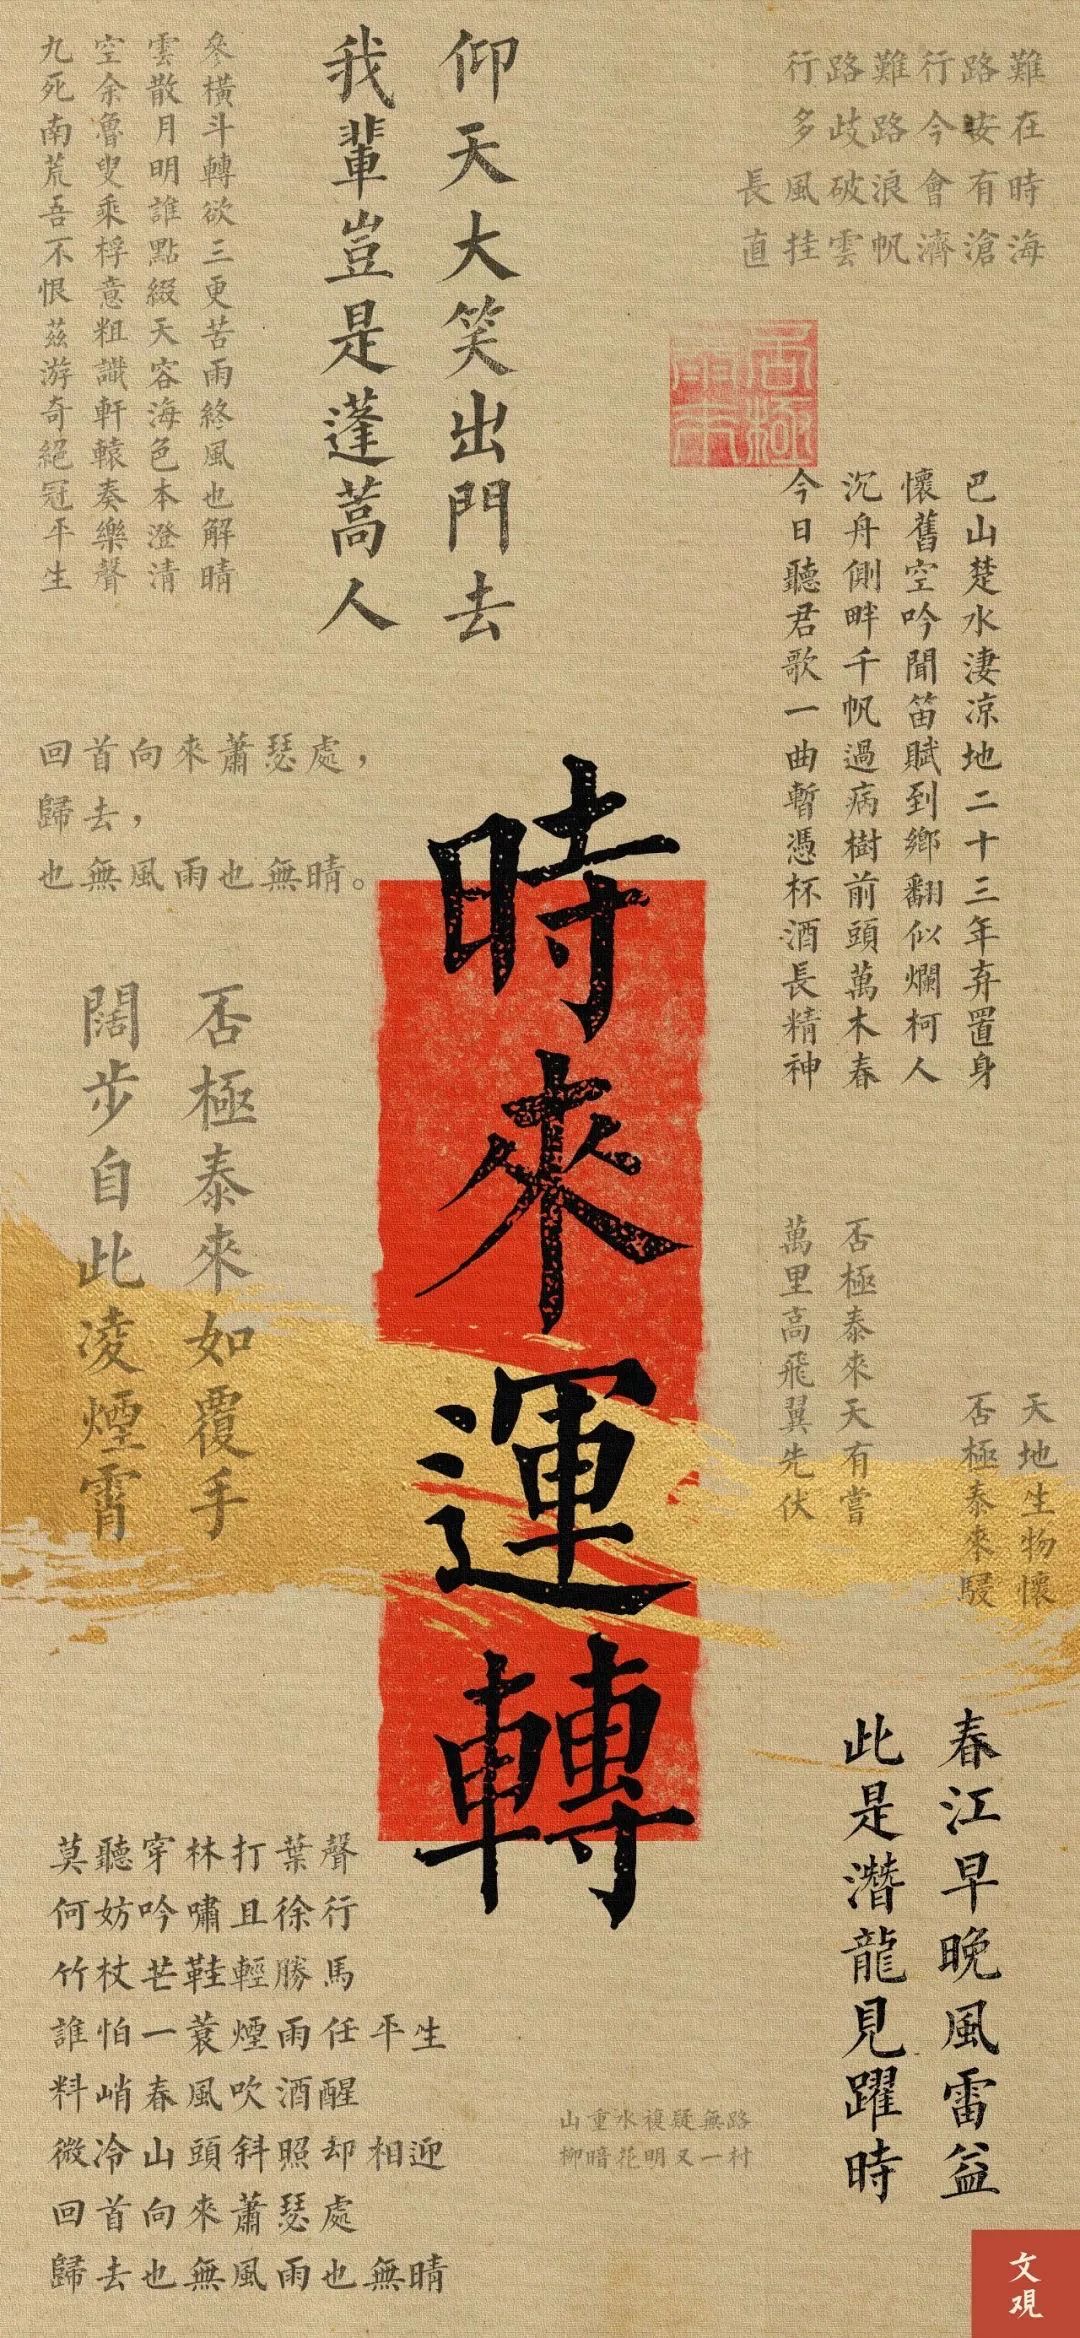 行路難行路難
多歧路今安在
長風破浪會有時
直挂雲帆濟滄海
仰天大笑出門去
我輩豈是蓬蒿人
參橫斗轉欲三更苦雨終風也解晴
雲散月明誰點綴天容海色本澄清
空余魯叟乘桴意粗識軒轅奏樂聲
九死南荒吾不恨茲游奇絕冠平生
巴山楚水淒凉地二十三年弃置身
懷舊空吟聞笛賦到鄉翻似爛柯人
沉舟側畔千帆過病樹前頭萬木春
今日聽君歌一曲暫憑杯酒長精神
回首向來蕭瑟處，
歸去，
也無風雨也無晴。
時來運轉
否極泰來如覆手
闊步自此凌煙霄
否極泰來天有嘗
萬里高飛翼先伏
天地生物懷
否極泰來駸
春江早晚風雷益
此是潛龍見躍時
莫聽穿林打葉聲
何妨吟嘯且徐行
竹杖芒鞋輕勝馬
誰怕一蓑煙雨任平生
料峭春風吹酒醒
微冷山頭斜照却相迎
回首向來蕭瑟處
歸去也無風雨也無晴
山重水複疑無路
柳暗花明又一村
文观